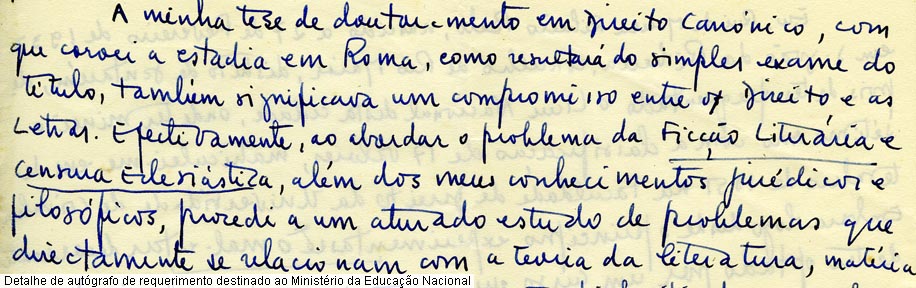 A minha tese de doutoramento em Direito Canónico, com
que coroei a estadia em Roma, como resultará do simples exame do
título, também significava um compromisso entre o Direito e as
Letras. Efectivamente, ao abordar o problema da Ficção Literária e
Censura Eclesiástica, além dos meus conhecimentos jurídicos e
filosóficos, procedi a um aturado estudo de problemas que
directamente se relacionam com a teoria da literatura, matéria
Detalhe de autógrafo de requerimento destinado ao Ministério da Educação Nacional